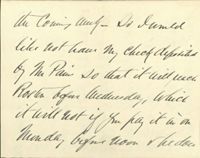 the Coming – So I would
like not have my cheque deposited
by Mr Pain so that it will reach
before Wednesday, which
it will not if you pay it in on
Monday before noon &